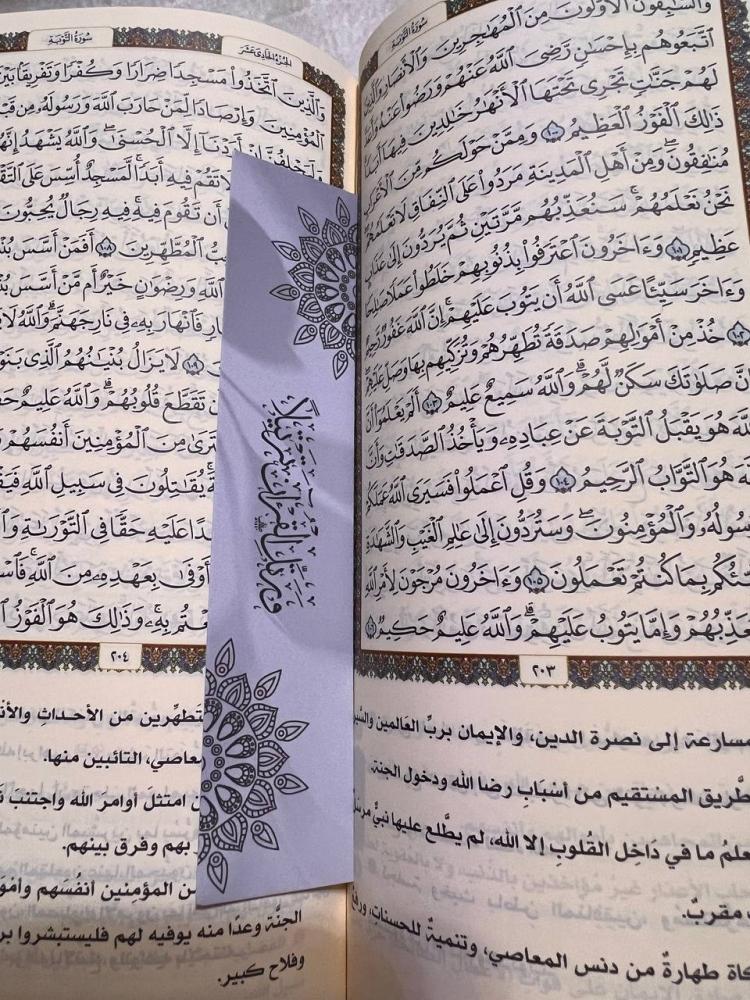 سُورَةُ التَّوْبَةِ
وَالسَّابِقُونَ الْأَوَّلُونَ مِنَ الْمُهَاجِرِينَ وَالْأَنصَارِ وَالَّذِينَ
اتَّبَعُوهُم بِإِحْسَانٍ رَّضِيَ اللَّهُ عَنْهُمْ وَرَضُوا عَنْهُ وَأَعَدَّ
لَهُمْ جَنَّاتٍ تَجْرِي تَحْتَهَا الْأَنْهَارُ خَالِدِينَ فِيهَا أَبَدًا
ذَٰلِكَ الْفَوْزُ الْعَظِيمُ ١٠٠ وَمِمَّنْ حَوْلَكُم مِّنَ الْأَعْرَابِ
مُنَافِقُونَ ۖ وَمِنْ أَهْلِ الْمَدِينَةِ مَرَدُوا عَلَى النِّفَاقِ لَا تَعْلَمُهُمْ
نَحْنُ نَعْلَمُهُمْ ۚ سَنُعَذِّبُهُم مَّرَّتَيْنِ ثُمَّ يُرَدُّونَ إِلَىٰ عَذَابٍ
عَظِيمٍ ١٠١ وَءَاخَرُونَ اعْتَرَفُوا بِذُنُوبِهِمْ خَلَطُوا عَمَلًا صَالِحًا
وَءَاخَرَ سَيِّئًا عَسَى اللَّهُ أَن يَتُوبَ عَلَيْهِمْ ۚ إِنَّ اللَّهَ غَفُورٌ رَّحِيمٌ
١٠٢ خُذْ مِنْ أَمْوَالِهِمْ صَدَقَةً تُطَهِّرُهُمْ وَتُزَكِّيهِم بِهَا وَصَلِّ عَلَيْهِمْ
إِنَّ صَلَوٰتَكَ سَكَنٌ لَّهُمْ ۗ وَاللَّهُ سَمِيعٌ عَلِيمٌ ١٠٣ أَلَمْ يَعْلَمُوا أَنَّ
اللَّهَ هُوَ يَقْبَلُ التَّوْبَةَ عَنْ عِبَادِهِ وَيَأْخُذُ الصَّدَقَاتِ وَأَنَّ
اللَّهَ هُوَ التَّوَّابُ الرَّحِيمُ ١٠٤ وَقُلِ اعْمَلُوا فَسَيَرَى اللَّهُ عَمَلَكُمْ
وَرَسُولُهُ وَالْمُؤْمِنُونَ ۖ وَسَتُرَدُّونَ إِلَىٰ عَالِمِ الْغَيْبِ وَالشَّهَادَةِ
فَيُنَبِّئُكُم بِمَا كُنتُمْ تَعْمَلُونَ ١٠٥ وَءَاخَرُونَ مُرْجَوْنَ لِأَمْرِ اللَّهِ
يُعَذِّبُهُمْ وَإِمَّا يَتُوبُ عَلَيْهِمْ ۗ وَاللَّهُ عَلِيمٌ حَكِيمٌ ١٠٦
٢٠٣
مسارعة إلى نصرة الدين، والإيمان بربِّ العالمين
الطَّريق المستقيم من أسْبَابِ رضا الله ودخول الجنة.
يعلمُ ما في دَاخِلِ القُلوبِ إلا الله، لم يطَّلع عليها نبيٌّ
مقربٌ.
طهارةٌ من دنس المعاصي، وتنميةٌ للحسنات،
الجُزْءُ الحَادِي عَشَرَ
سُورَةُ التَّوْبَةِ
وَالَّذِينَ اتَّخَذُوا مَسْجِدًا ضِرَارًا وَكُفْرًا وَتَفْرِيقًا بَيْنَ
الْمُؤْمِنِينَ وَإِرْصَادًا لِّمَنْ حَارَبَ اللَّهَ وَرَسُولَهُ مِن قَبْلُ
أَرَدْنَا إِلَّا الْحُسْنَىٰ ۖ وَاللَّهُ يَشْهَدُ إِنَّهُمْ
لَا تَقُمْ فِيهِ أَبَدًا ۚ لَّمَسْجِدٌ أُسِّسَ عَلَى التَّقْوَىٰ
أَن تَقُومَ فِيهِ ۚ فِيهِ رِجَالٌ يُحِبُّونَ
الْمُطَّهِّرِينَ ١٠٨ أَفَمَنْ أَسَّسَ
اللَّهِ وَرِضْوَانٍ خَيْرٌ أَم مَّنْ أَسَّسَ
فَانْهَارَ بِهِ فِي نَارِ جَهَنَّمَ ۗ وَاللَّهُ لَا
١٠٩ لَا يَزَالُ بُنْيَانُهُمُ الَّذِي بَنَوْا
تَقَطَّعَ قُلُوبُهُمْ ۗ وَاللَّهُ عَلِيمٌ
مِنَ الْمُؤْمِنِينَ أَنفُسَهُمْ
يُقَاتِلُونَ فِي سَبِيلِ اللَّهِ
عَلَيْهِ حَقًّا فِي التَّوْرَاةِ
أَوْفَىٰ بِعَهْدِهِ مِنَ اللَّهِ ۚ
بِهِ ۚ وَذَٰلِكَ هُوَ الْفَوْزُ
٢٠٤
من الأحداثِ
التائبين منها.
امتثل أوامرَ الله واجتنبَ
بهم وفرق بينهم.
المؤمنين أنفُسَهم
الجنَّة وعدًا منه يوفيه لهم فليستبشروا
وفلاح كبير.
وَرَتِّلِ الْقُرْآنَ تَرْتِيلًا